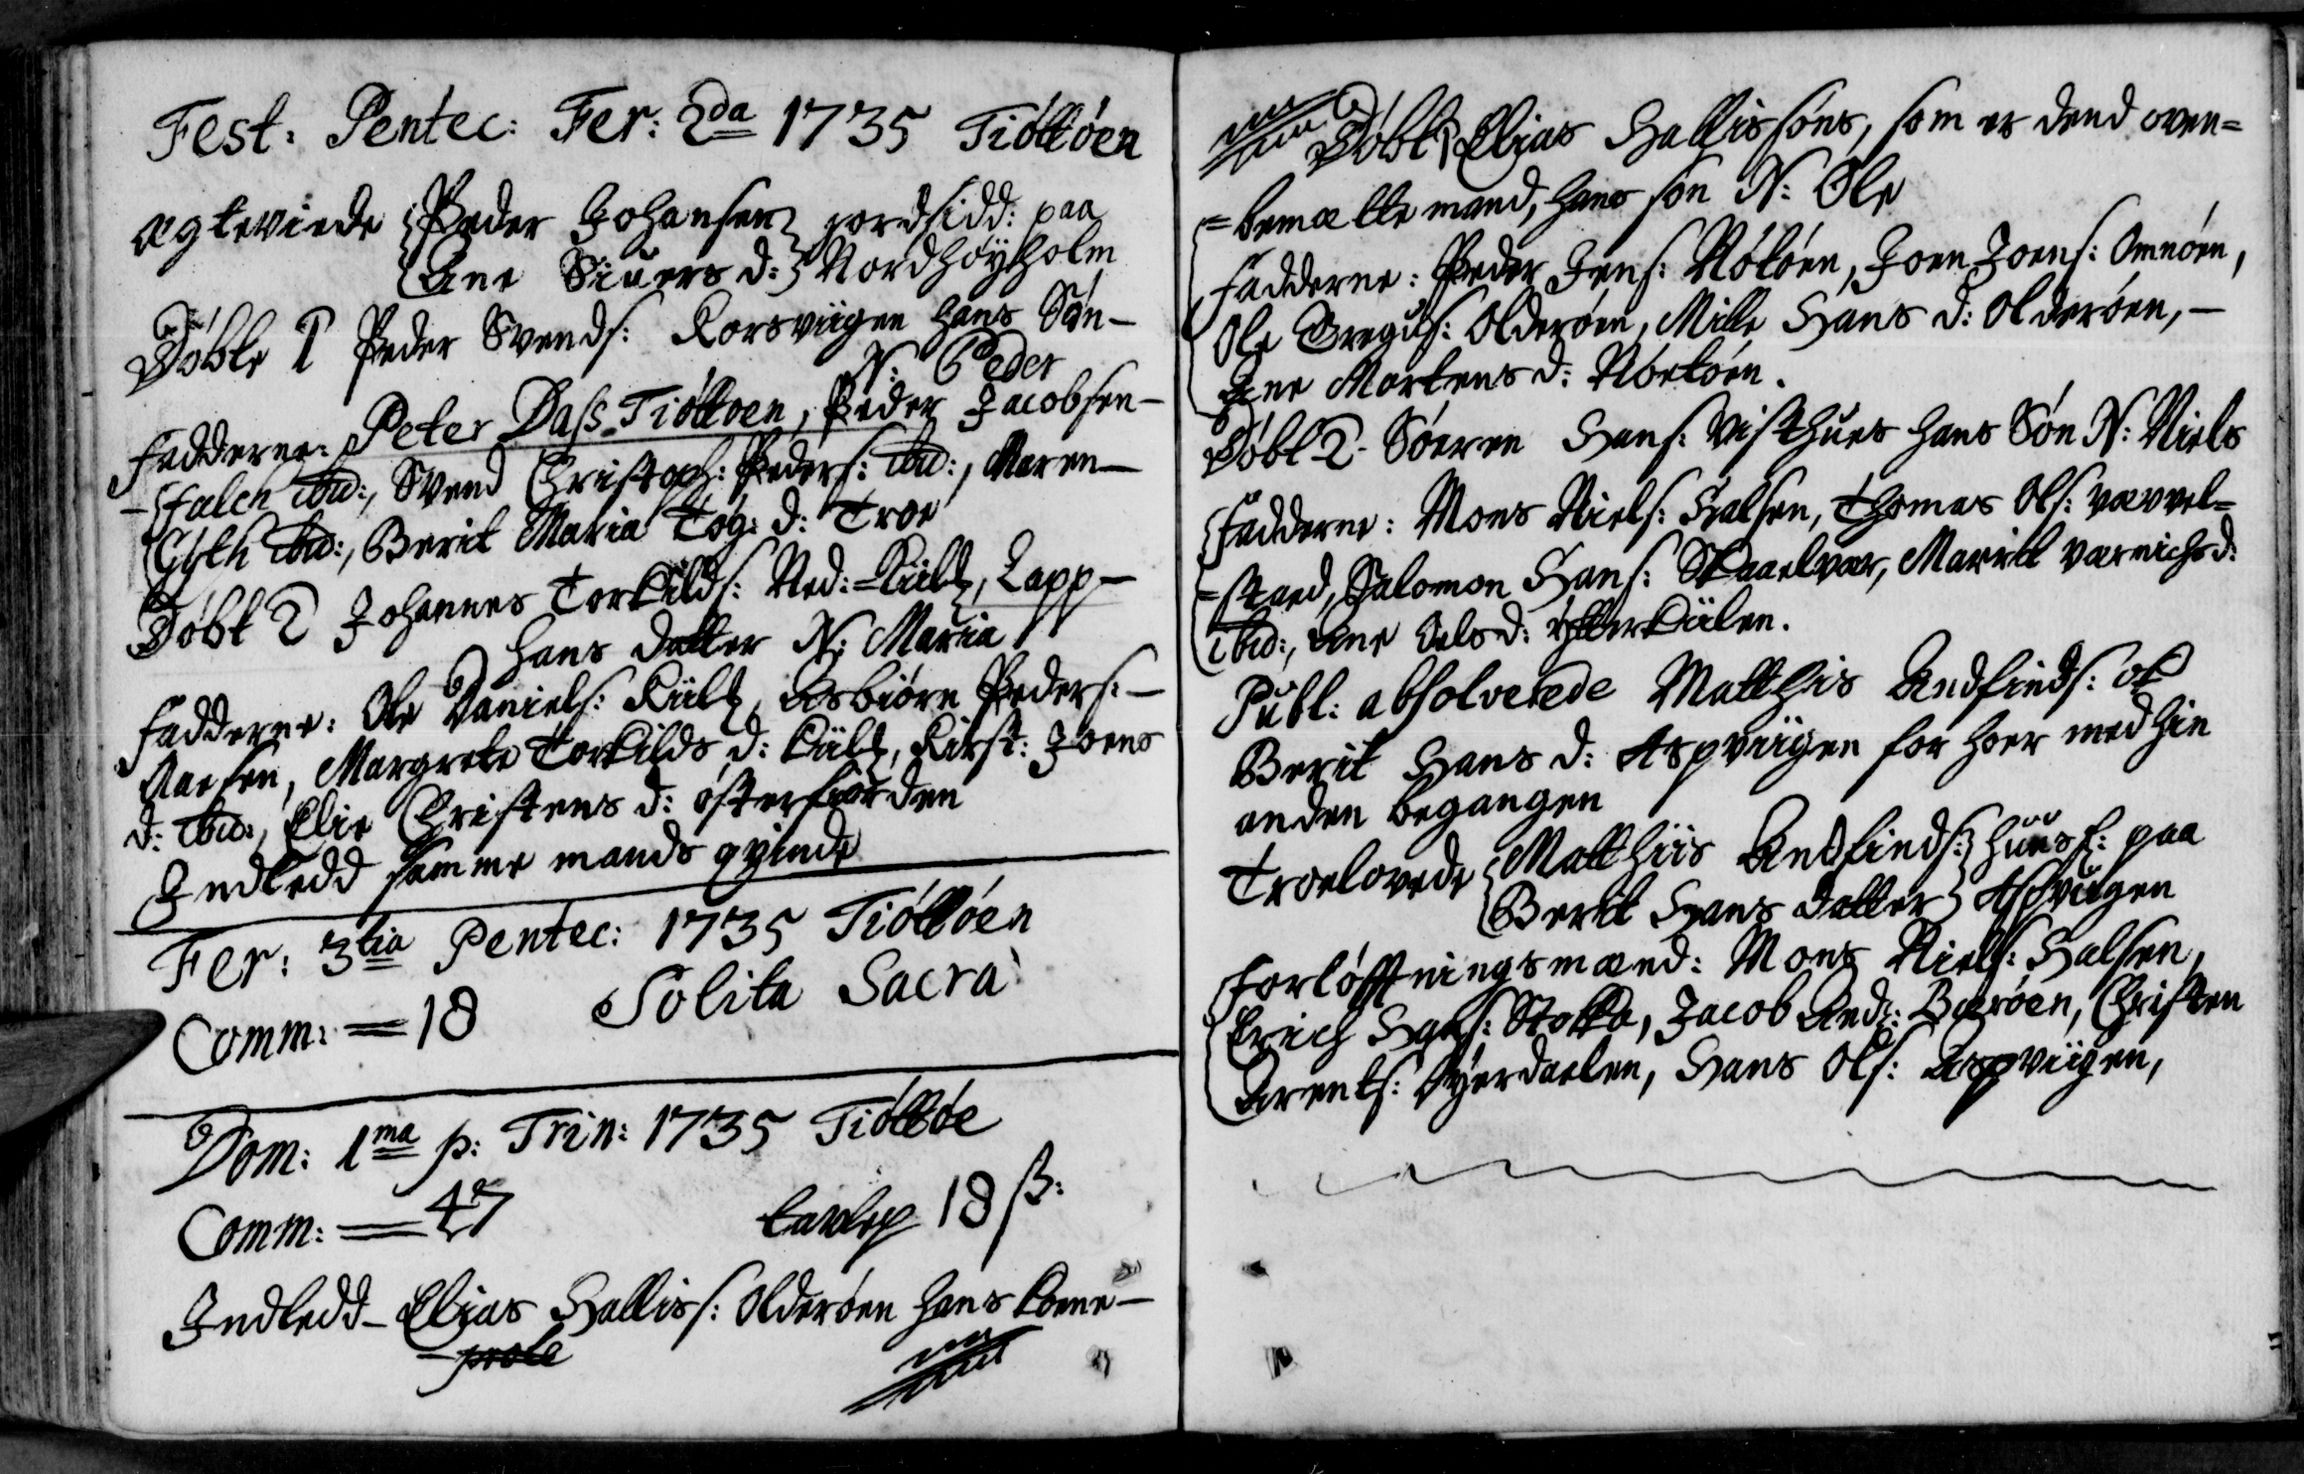 Fest: Pentec: Fer: 2da 1735 Tiøttøen
ægteviede Peder Johansen jordsidd: paa
Ane Siuers d: Nordhøyholm
Døbte 1 Peder Svends: Korsviigen hans Søn
N: Peder
Fadderne: Peter Dass Tiøttøen, Peder Jacobsen
Falch ibid:, Svend Christoph: Peders: ibid:, Maren
Gyth ibid:, Berit Maria Tøg: d: Troe
Døbt 2 Johannes Torkilds: Ned: Lapp
hans datter N: Maria
Fadderne: Ole Daniels: Asbiørn Peders:
Margrete Torkilds d: Kirst: Joens
d: ibid:, Elie Christens d: østerfiorden
Indledd samme mands qvinde
Fer: 3tia Pentec: 1735 Tiøttøen
Comm: = 18 Solita Sacra
Dom: 1ma p: Trin: 1735 Tiøttøe
Comm: = 47 tavlep 18 ß:
Indledd Elias Hallis: Olderøen hans kone
prole
Døbt 1 Elias Hallissøns, som er dend oven=
=bemælte mand, hans søn N: Ole
Fadderne: Peder Jens: Røtøen, Joen Joens: Omnøen,
Ole Gregus: Olderøen, Mille Hans d: Olderøen,
Ane Mortens d:
Døbt 2. Søeren Hans: Visthues hans Søn N: Niels
Fadderne: Mons Niels: Halsen, Thomas Ols: værrel=
=stoed, Salomon Hans: Skaalvær, Marrit Værnichs d:
ibid:, Ane Oels d:
Publ: absolverede Matthis Andfinds: ok
Berit Hans d: Aspviigen for hoer med hin
anden begangen
Troelovede Matthiis Andfinds: huusf: paa
Berit Hans datter Aspviigen
Forløfftningsmænd: Mons Niels: Halsen,
Erich Hans: Stokka, Jacob And: Bærøen, Christen
Arents: Hans Ols: Aspviigen,